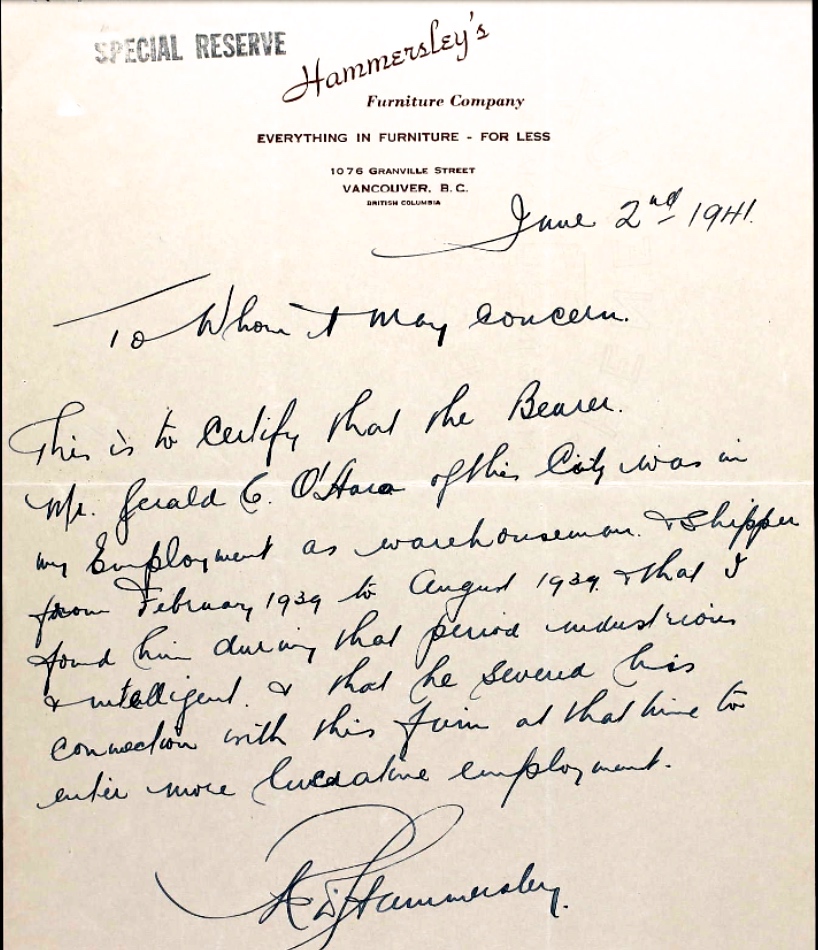 SPECIAL RESERVE
Hammersley's
Furniture Company
EVERYTHING IN FURNITURE - FOR LESS
1076 GRANVILLE STREET
VANCOUVER, B.C.
BRITISH COLUMBIA
June 2nd 1941.
To Whom It May Concern.
This is to Certify that the Bearer.
Mr. Gerald C. O'Hara of this City was in
my Employment as warehouseman. & Shipper
from February 1939 to August 1939. & that I
found him during that period industrious
& intelligent. & that he severed his
connection with this firm at that time to
enter more lucrative employment.
Hammersley.